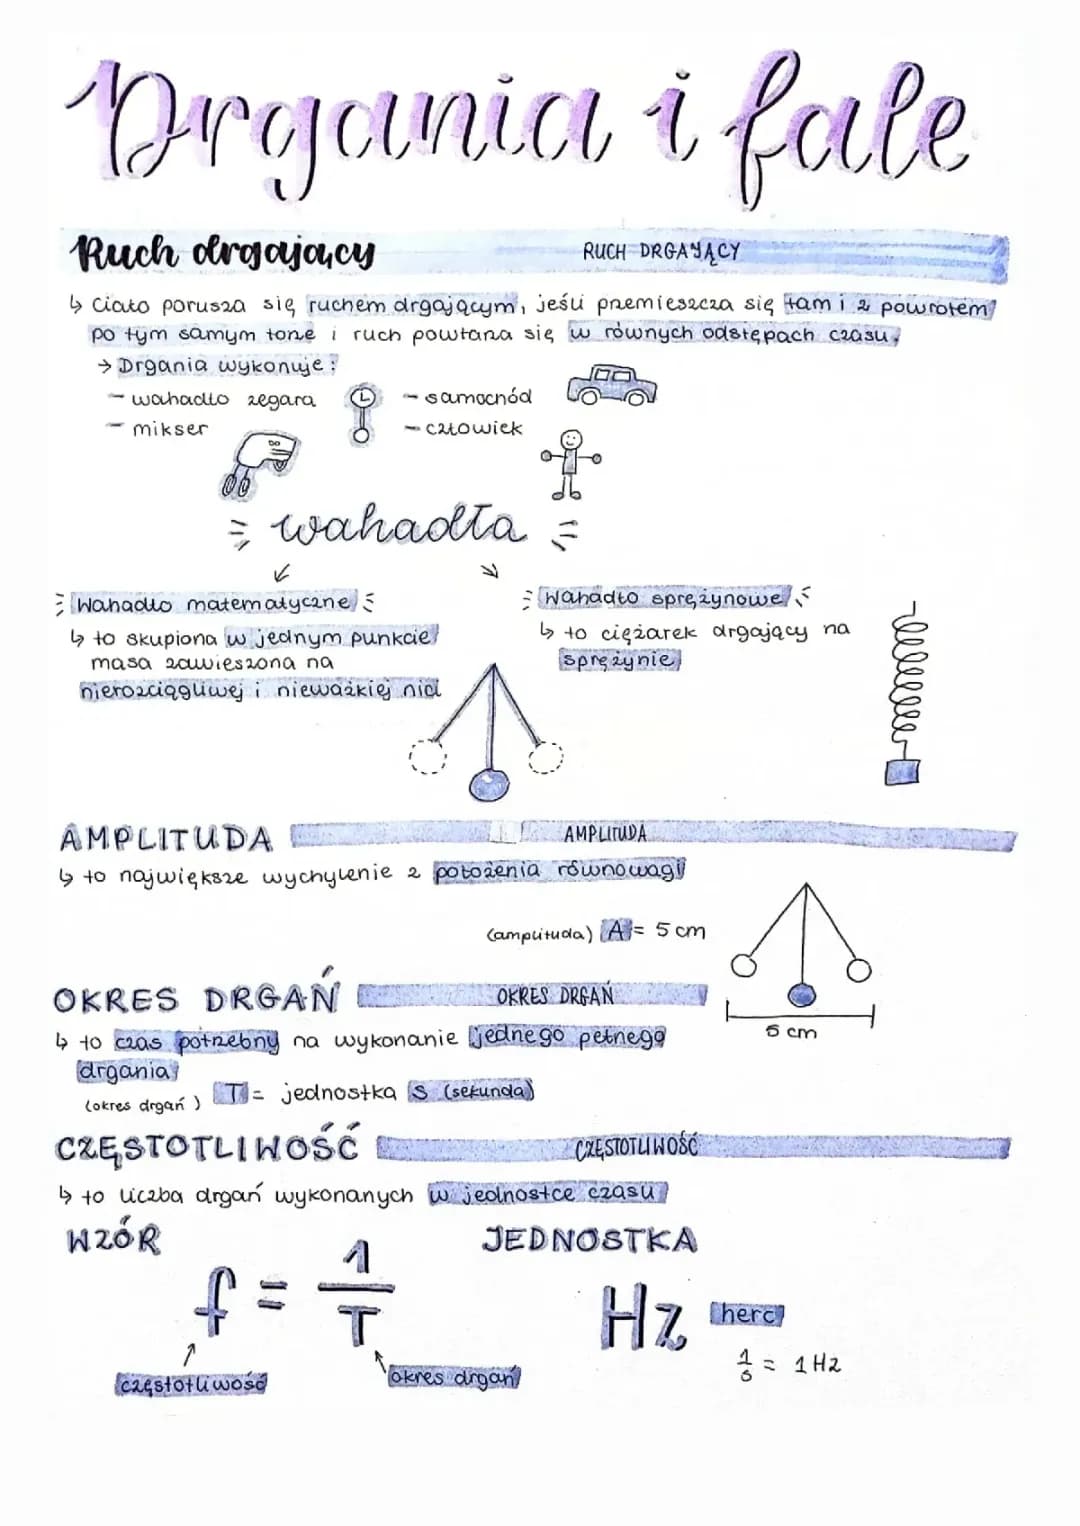 Drgania i fale
Ruch drgający
RUCH DRGAJĄCY
↳ Ciało porusza się ruchem drgającym, jeśli przemieszcza się tam i z powrotem
po tym samym torze i ruch powtarza się w równych odstępach czasu.
→ Drgania wykonuje:
- wahadło zegara
- samochód
- mikser
- człowiek
wahadła
Wahadło matematyczne
↳ to skupiona w jednym punkcie
masa zawieszona na
nierozciągliwej i nieważkiej nici
Wahadło sprężynowe
↳ to ciężarek drgający na
sprężynie
AMPLITUDA
AMPLITUDA
↳ to największe wychylenie z położenia równowagi
(amplituda) A = 5 cm
5 cm
OKRES DRGAŃ
OKRES DRGAŃ
↳ to czas potrzebny na wykonanie jednego pełnego
drgania
(okres drgań) T = jednostka s (sekunda)
CZĘSTOTLIWOŚĆ
CZĘSTOTLIWOŚĆ
↳ to liczba drgań wykonanych w jednostce czasu
WZÓR
f = 1/T
częstotliwość
okres drgań
JEDNOSTKA
Hz herc
1/s = 1 Hz